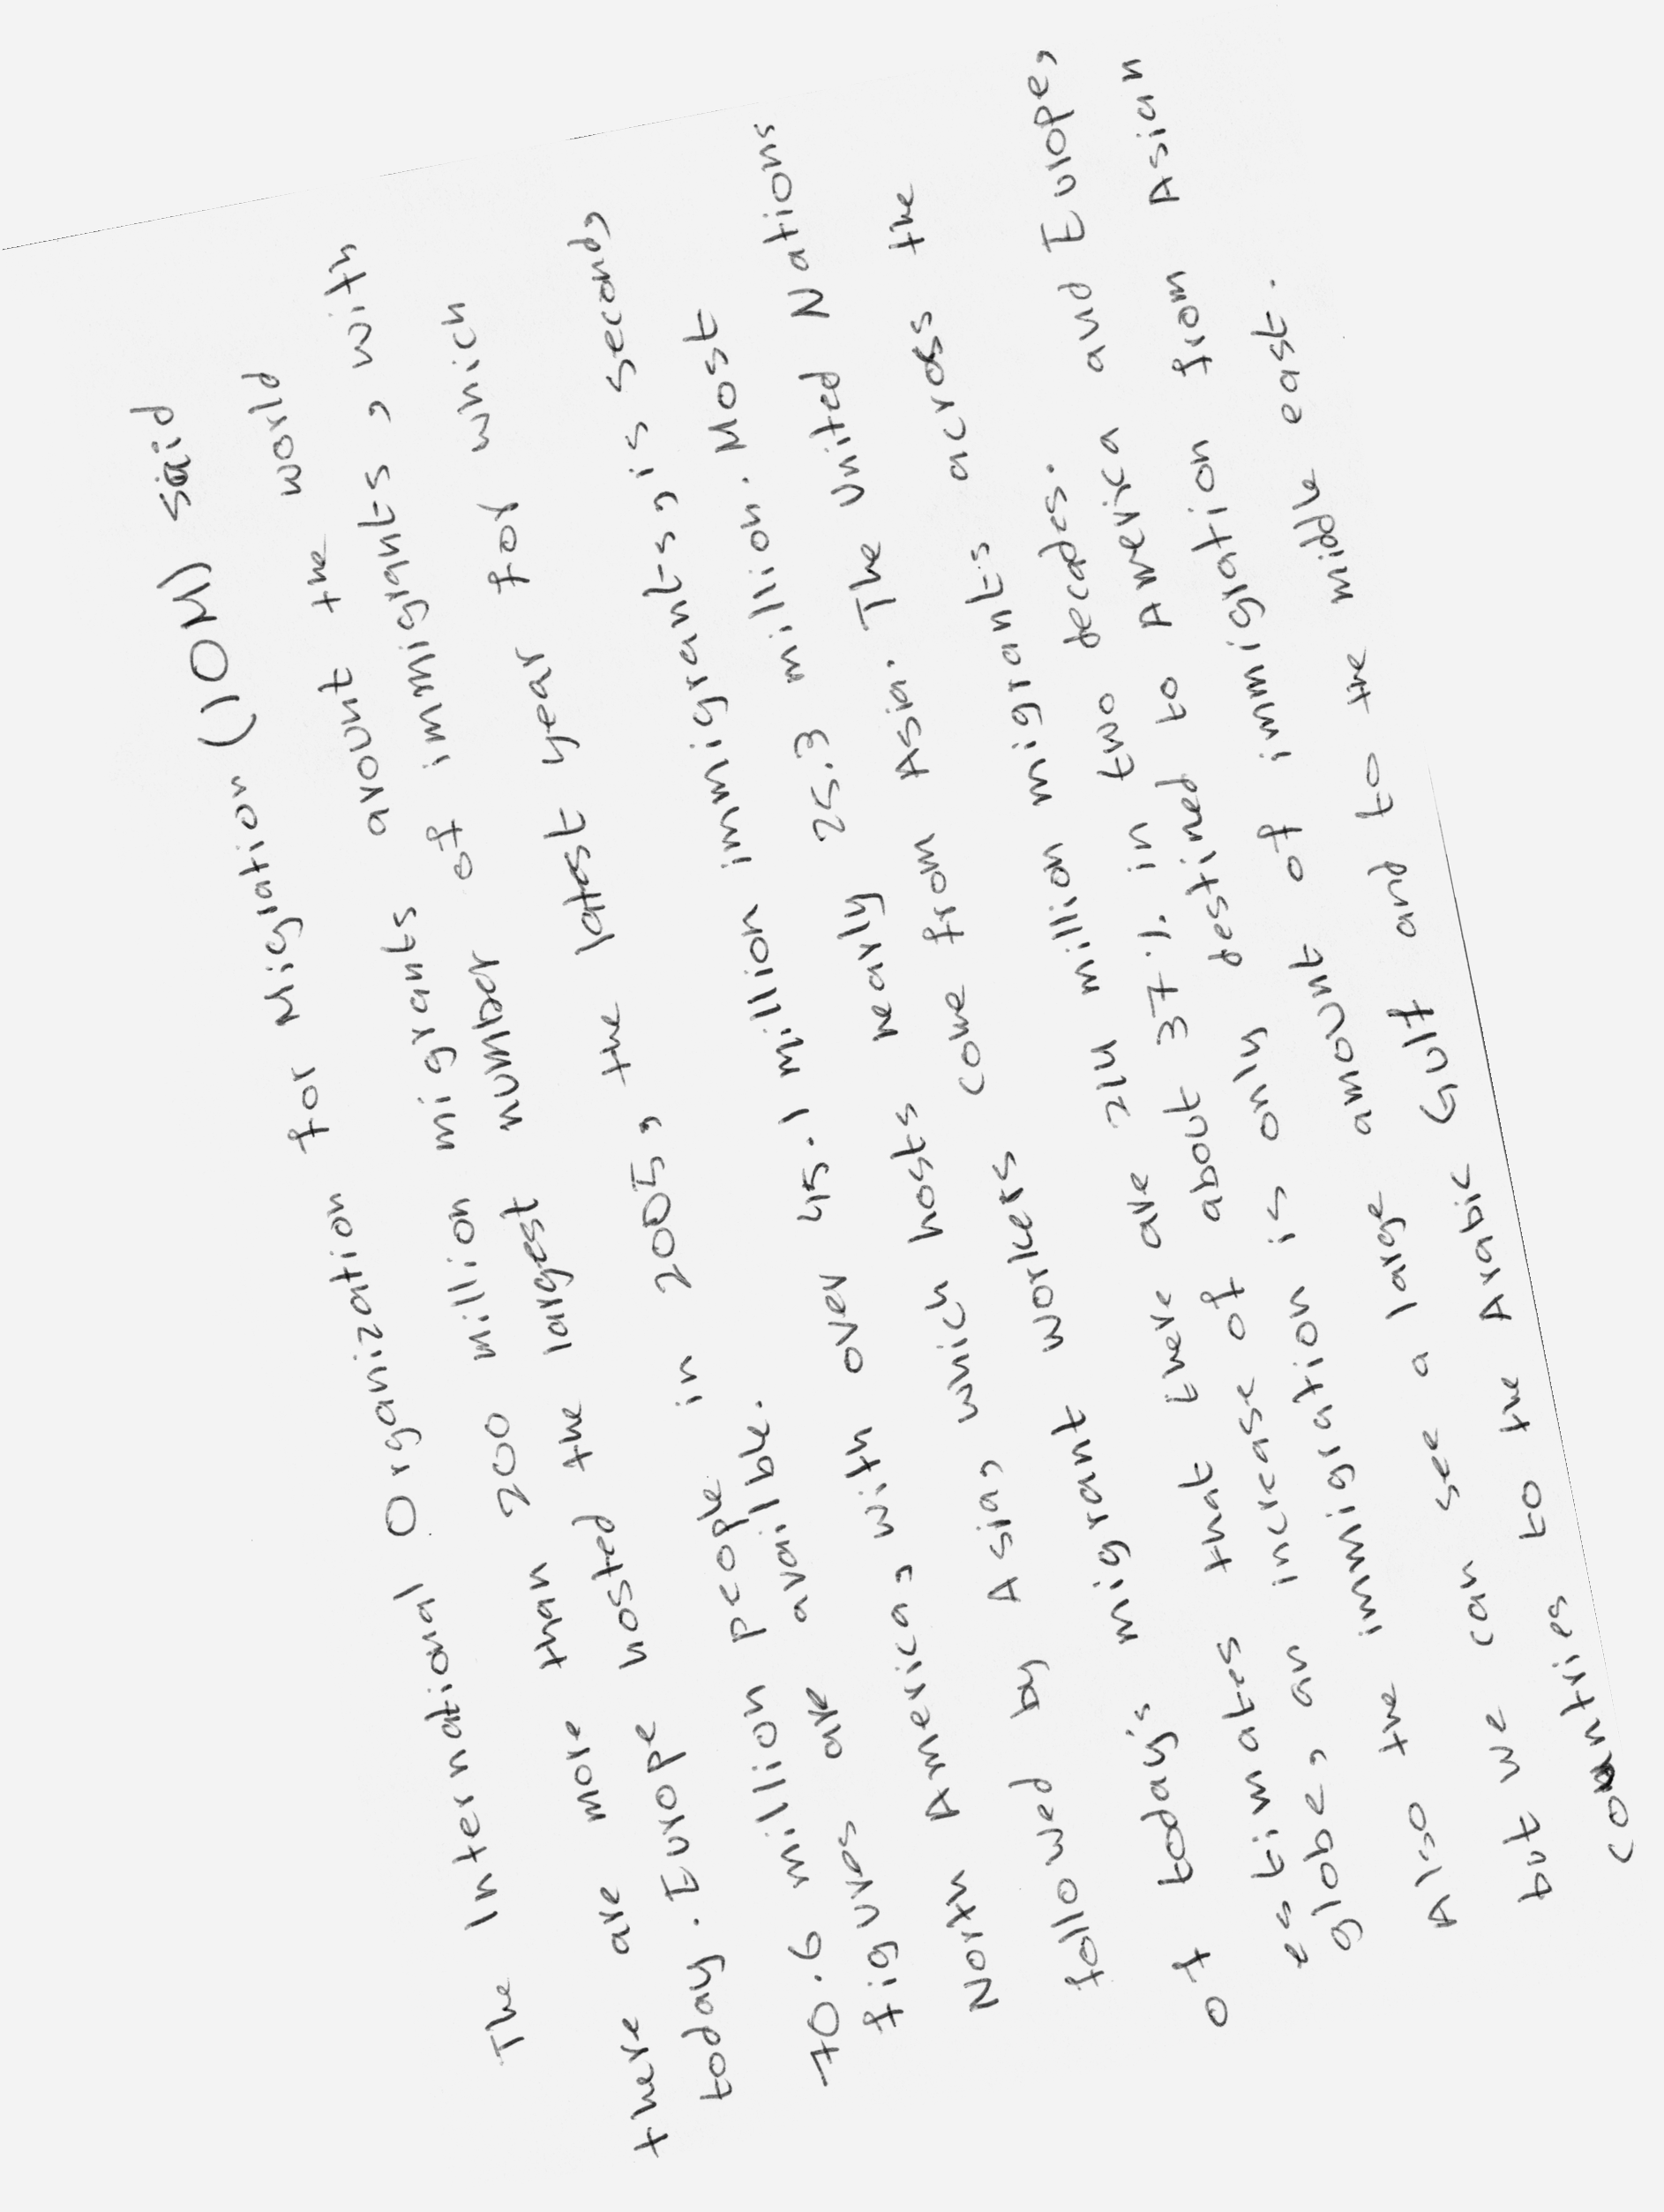 The International Organization for Migration (IOM) said
there are more than 200 million migrants avount the world
today. Europe hosted the largest number of immigrants, with
70.6 million people in 2005, the latest year for which
figures are availble. North America, with over 45.1 million immigrants, is second,
followed by Asia, which hosts nearly 25.3 million. Most
of today's migrant workers come from Asia. The United Nations
estimates that there are 214 million migrants across the
globe, an increase of about 37% in two decades.
Also the immigration is only destined to America and Europe,
but we can see a large amount of immigration from Asian
countries to the Arabic Gulf and to the middle east.